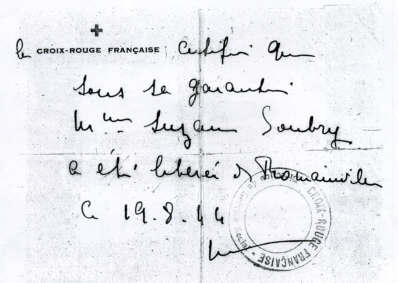 la CROIX-ROUGE FRANÇAISE certifie que
sous sa garantie
Mme Suzanne Soubry
a été libérée de Romainville
Ce 19.8.44
CROIX-ROUGE FRANÇAISE